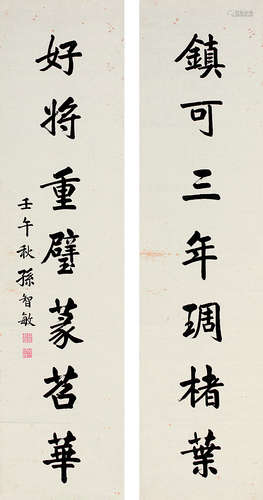 鎮可三年琱楮葉
好將重壁篆苕華
壬午秋孫智敏